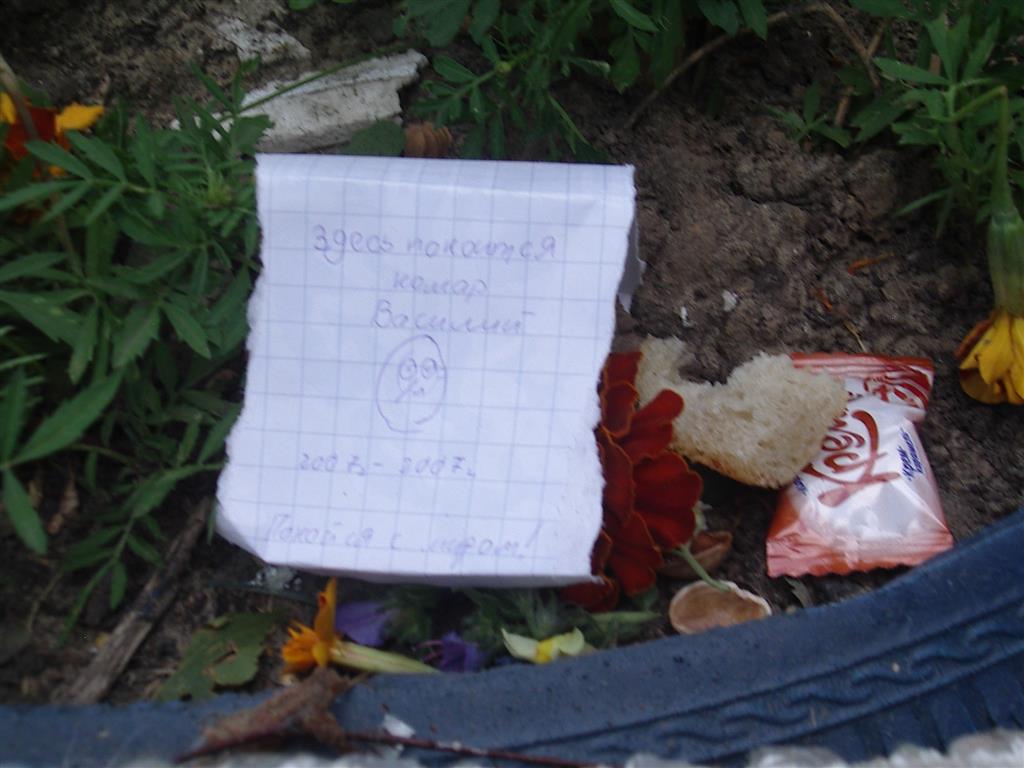 Здесь покоится
комар
Василий
2007г. - 2007г.
Покойся с миром!